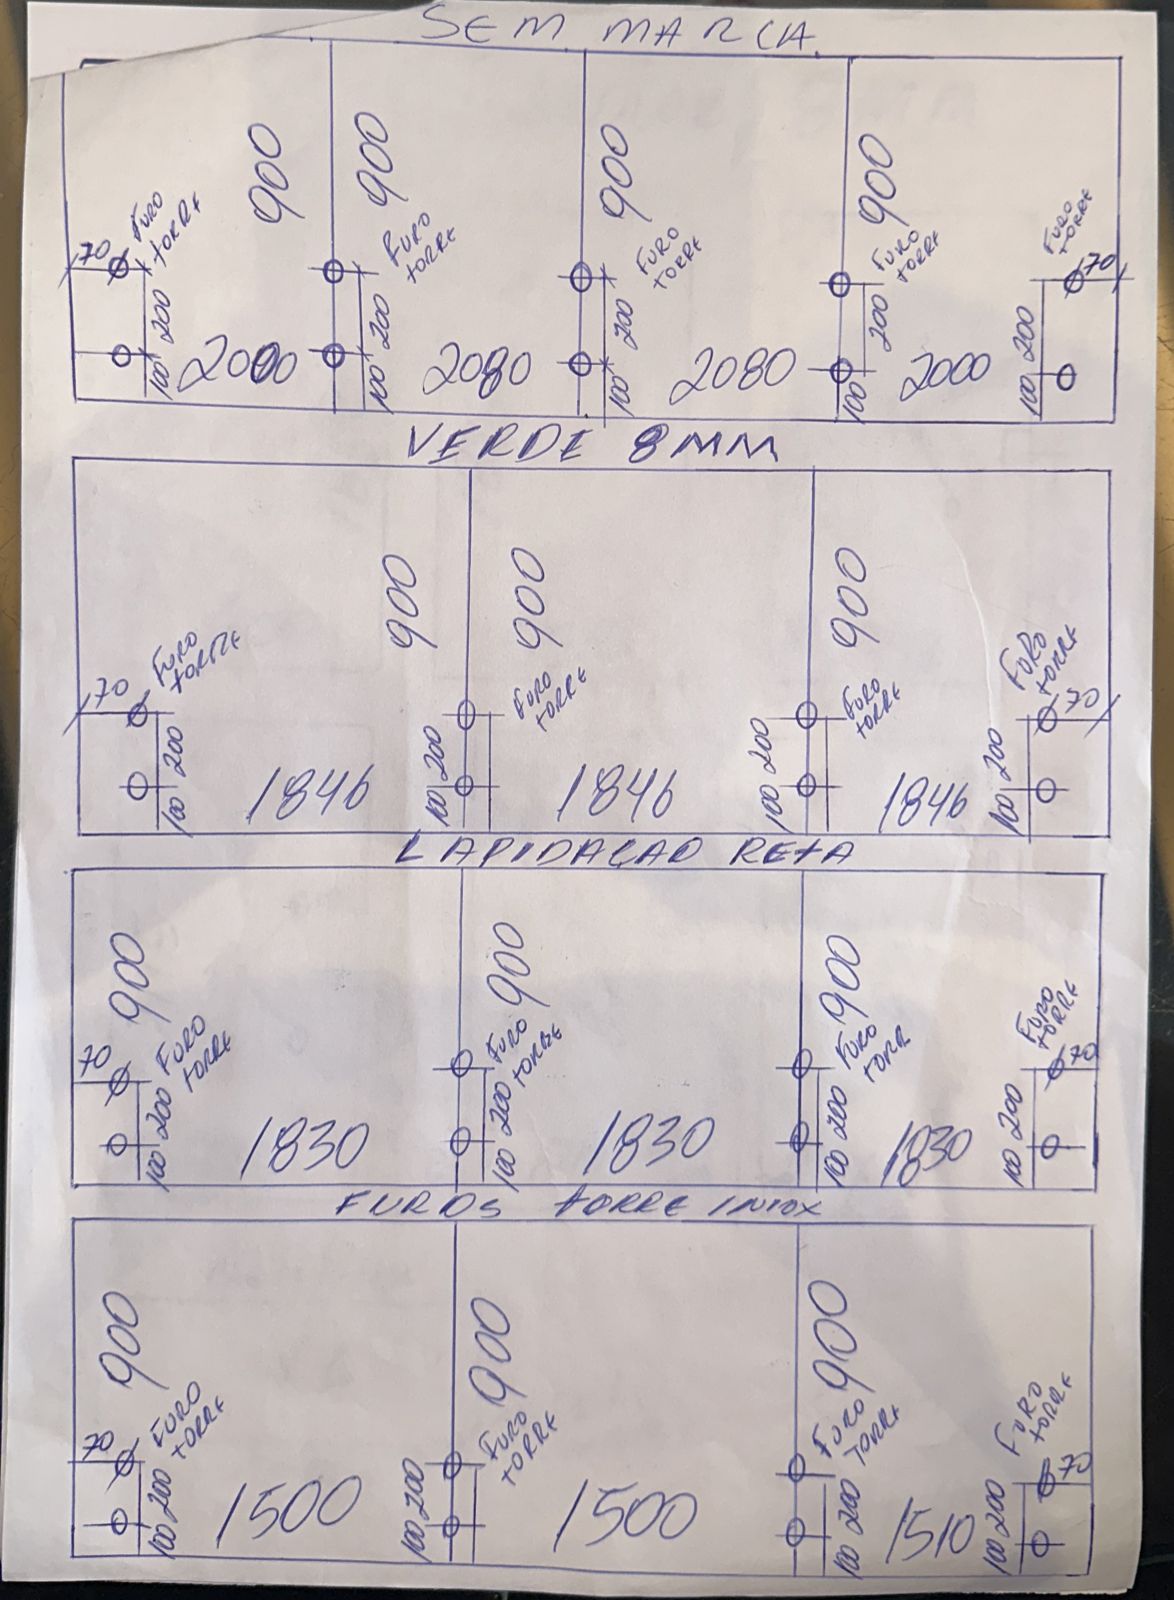 SEM MARCA.
900 900 900 900
70 FURO TORRE FURO TORRE FURO TORRE FURO TORRE FURO TORRE 70
200 200 200 200 200
100 2000 100 2080 100 2080 100 2000 100
VERDE 8MM
900 900 900
70 FURO TORRE FURO TORRE FURO TORRE FURO TORRE 70
200 200 200 200
100 1846 100 1846 100 1846 100
LAPIDAÇAO RETA
900 900 900
70 FURO TORRE FURO TORRE FURO TORR FURO TORRE 70
200 200 200 200
100 1830 100 1830 100 1830 100
FUROS TORRE INOX
900 900 900
70 FURO TORRE FURO TORRE FURO TORRE FURO TORRE 70
200 200 200 200
100 1500 100 1500 100 1510 100